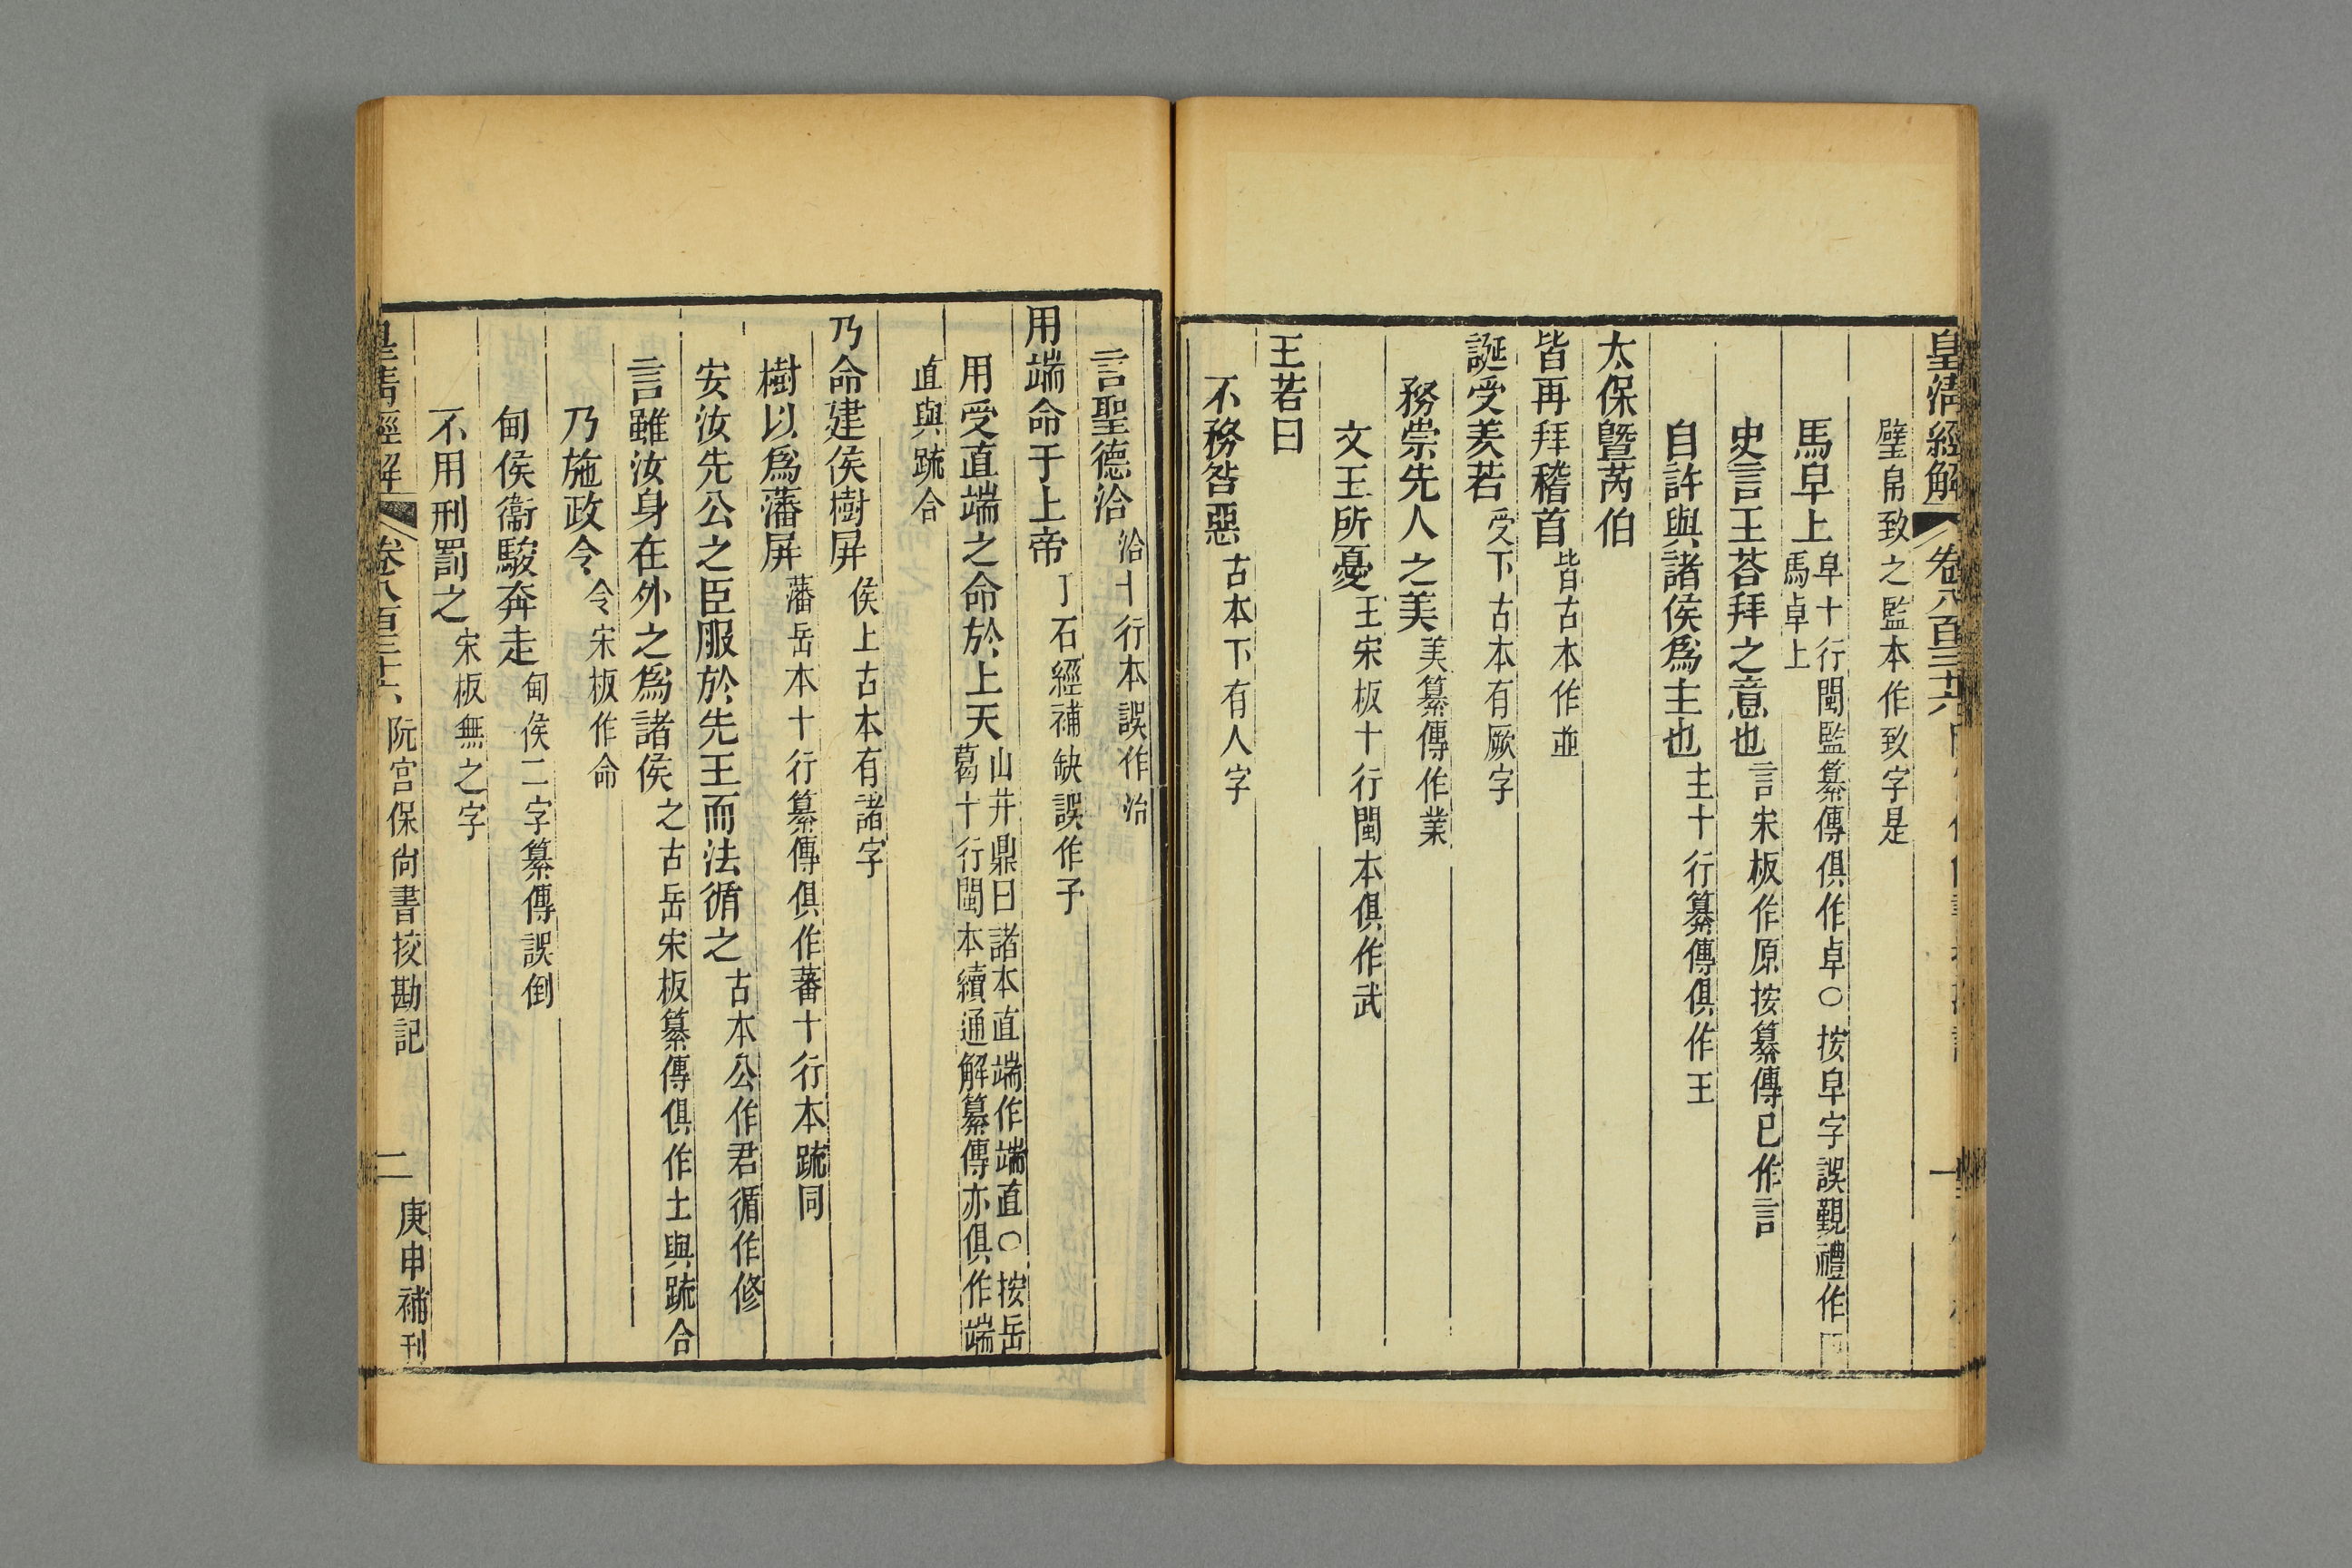 皇清經解 卷八百三十六
璧帛致之監本作致字是
馬皁上皁十行閩監纂傳俱作卓○按皁字誤覲禮作馬卓上
史言王荅拜之意也言宋板作原按纂傳已作言
自許與諸侯爲主也主十行纂傳俱作王
太保曁芮伯
皆再拜稽首皆古本作並
誕受羑若受下古本有厥字
務崇先人之美美纂傳作業
文王所憂王宋板十行閩本俱作武
王若曰
不務咎惡古本下有人字
言聖德洽洽十行本誤作治
用端命于上帝丁石經補缺誤作予
用受直端之命於上天山井鼎曰諸本直端作端直○按岳葛十行閩本續通解纂傳亦俱作端
直與疏合
乃命建侯樹屛侯上古本有諸字
樹以爲藩屛藩岳本十行纂傳俱作蕃十行本疏同
安汝先公之臣服於先王而法循之古本公作君循作修
言雖汝身在外之爲諸侯之古岳宋板纂傳俱作土與疏合
乃施政令令宋板作命
甸侯衞駿奔走甸侯二字纂傳誤倒
不用刑罰之宋板無之字
皇清經解 卷八百三十六 阮宮保尙書挍勘記 二 庚申補刊